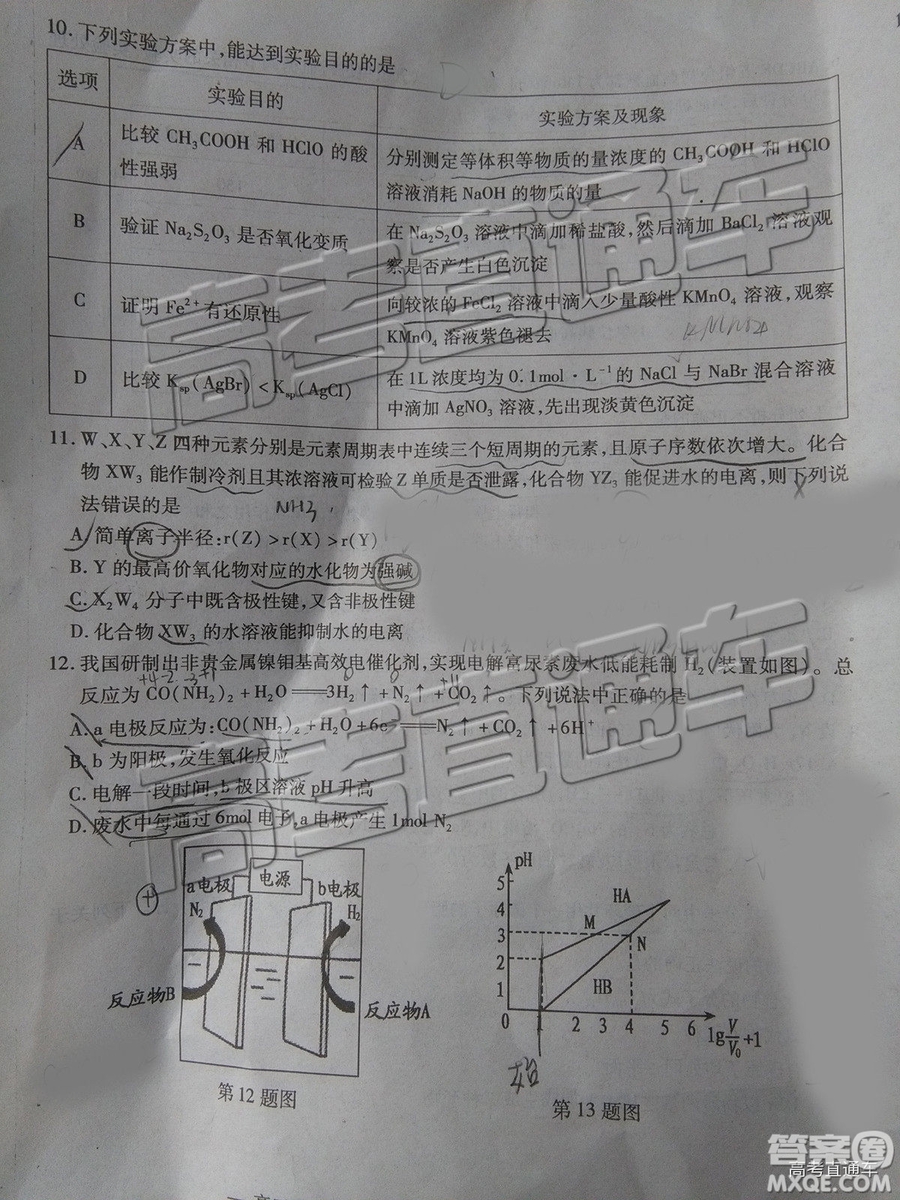 10. 下列实验方案中,能达到实验目的的是
选项
实验目的
实验方案及现象
A
比较 CH₃COOH 和 HClO 的酸
性强弱
分别测定等体积等物质的量浓度的 CH₃COOH 和 HClO
溶液消耗 NaOH 的物质的量
B
验证 Na₂S₂O₃ 是否氧化变质
在 Na₂S₂O₃ 溶液中滴加稀盐酸,然后滴加 BaCl₂ 溶液观
察是否产生白色沉淀
C
证明 Fe²⁺ 有还原性
向较浓的 FeCl₂ 溶液中滴入少量酸性 KMnO₄ 溶液,观察
KMnO₄ 溶液紫色褪去
KMnO4
D
比较 Kₛₚ(AgBr) < Kₛₚ(AgCl)
在 1L 浓度均为 0.1mol·L⁻¹ 的 NaCl 与 NaBr 混合溶液
中滴加 AgNO₃ 溶液,先出现淡黄色沉淀
11. W、X、Y、Z 四种元素分别是元素周期表中连续三个短周期的元素,且原子序数依次增大。化合
物 XW₃ 能作制冷剂且其浓溶液可检验 Z 单质是否泄露,化合物 YZ₃ 能促进水的电离,则下列说
法错误的是
NH3
A. 简单离子半径:r(Z)>r(X)>r(Y)
B. Y 的最高价氧化物对应的水化物为强碱
C. X₂W₄ 分子中既含极性键,又含非极性键
D. 化合物 XW₃ 的水溶液能抑制水的电离
12. 我国研制出非贵金属镍钼基高效电催化剂,实现电解富尿素废水低能耗制 H₂(装置如图)。总
+4 -2 -3 +1 0 0 +4
反应为 CO(NH₂)₂+H₂O══3H₂↑+N₂↑+CO₂↑。下列说法中正确的是
A. a 电极反应为:CO(NH₂)₂+H₂O+6e⁻══N₂↑+CO₂↑+6H⁺
B. b 为阳极,发生氧化反应
C. 电解一段时间,b 极区溶液 pH 升高
D. 废水中每通过 6mol 电子,a 电极产生 1mol N₂
+
a电极 电源 b电极
N₂ H₂
反应物B 反应物A
第 12 题图
pH
5
4
3
2
1
0 1 2 3 4 5 6 lg V/V₀ +1
HA
M
N
HB
第 13 题图
答案圈
高考直通车
MXQE.COM
高考直通车
高考直通车
高考直通车